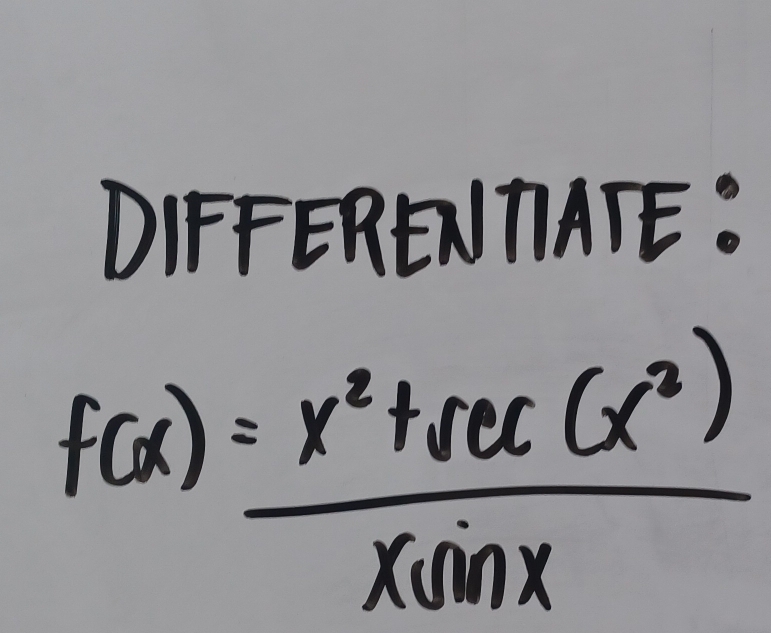 DIFFERENTIATE:
f(x) = x² + sec (x²)
x sin x